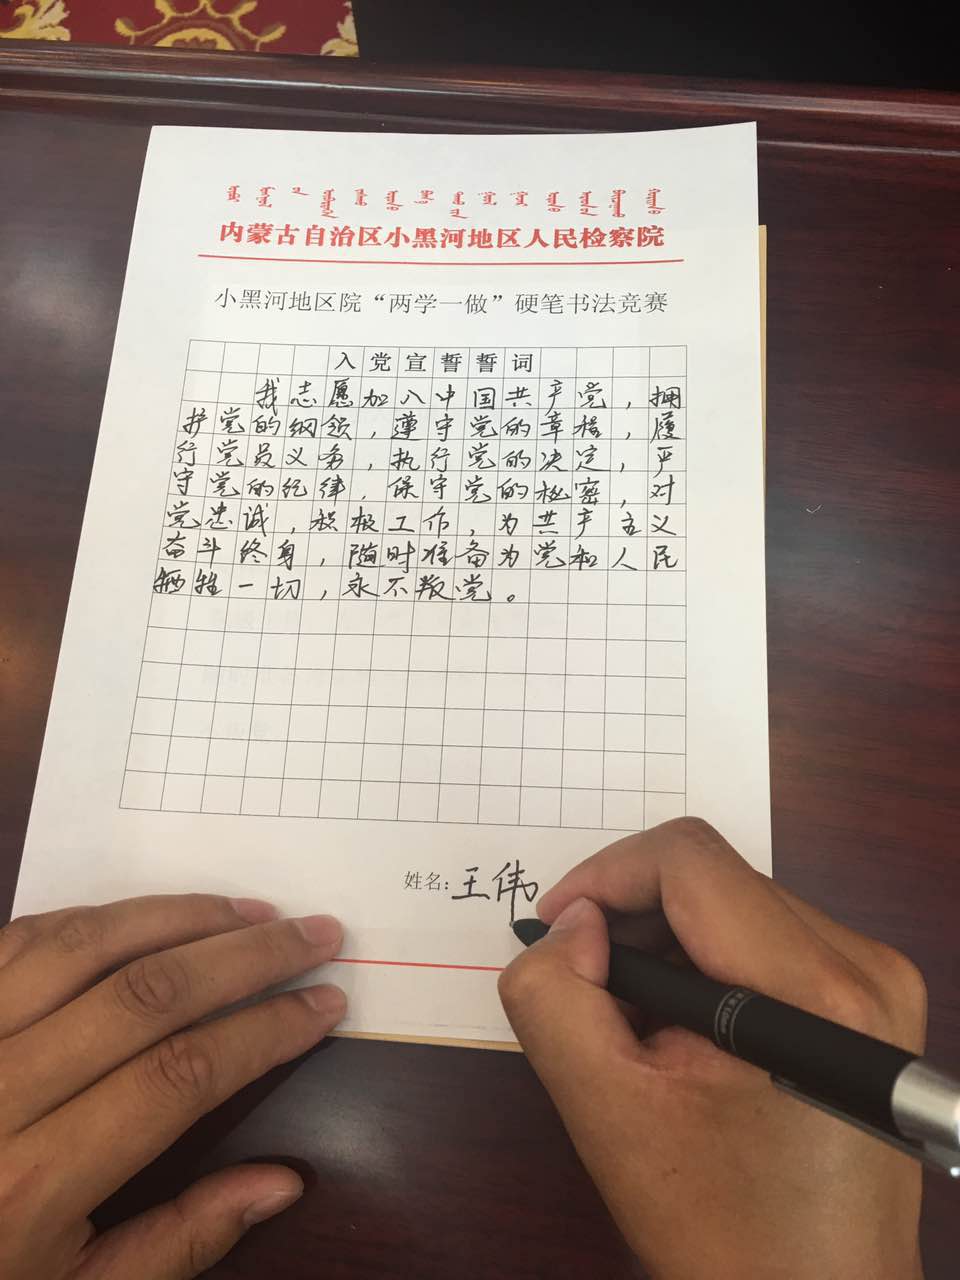 内蒙古自治区小黑河地区人民检察院
小黑河地区院“两学一做”硬笔书法竞赛
入党宣誓誓词
我志愿加入中国共产党，拥
护党的纲领，遵守党的章程，履
行党员义务，执行党的决定，严
守党的纪律，保守党的秘密，对
党忠诚，积极工作，为共产主义
奋斗终身，随时准备为党和人民
牺牲一切，永不叛党。
姓名：王伟